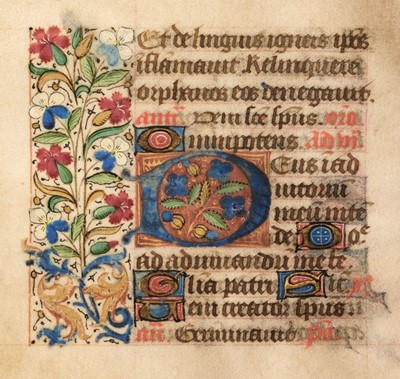 Et de linguis igneis ip̄os
iflamauit. Relinquere
orphanos eos denegauit.
an̄. Veni sc̄e sp̄us. oro̅
Omnipotens. ad vi̅
Deus i ad
iutoriu
meū inte̅
de. Do⁹
ad adiuuandu me fe.
Glia patri Sic
Veni creator spūs
an̄. Germinauit ps̄